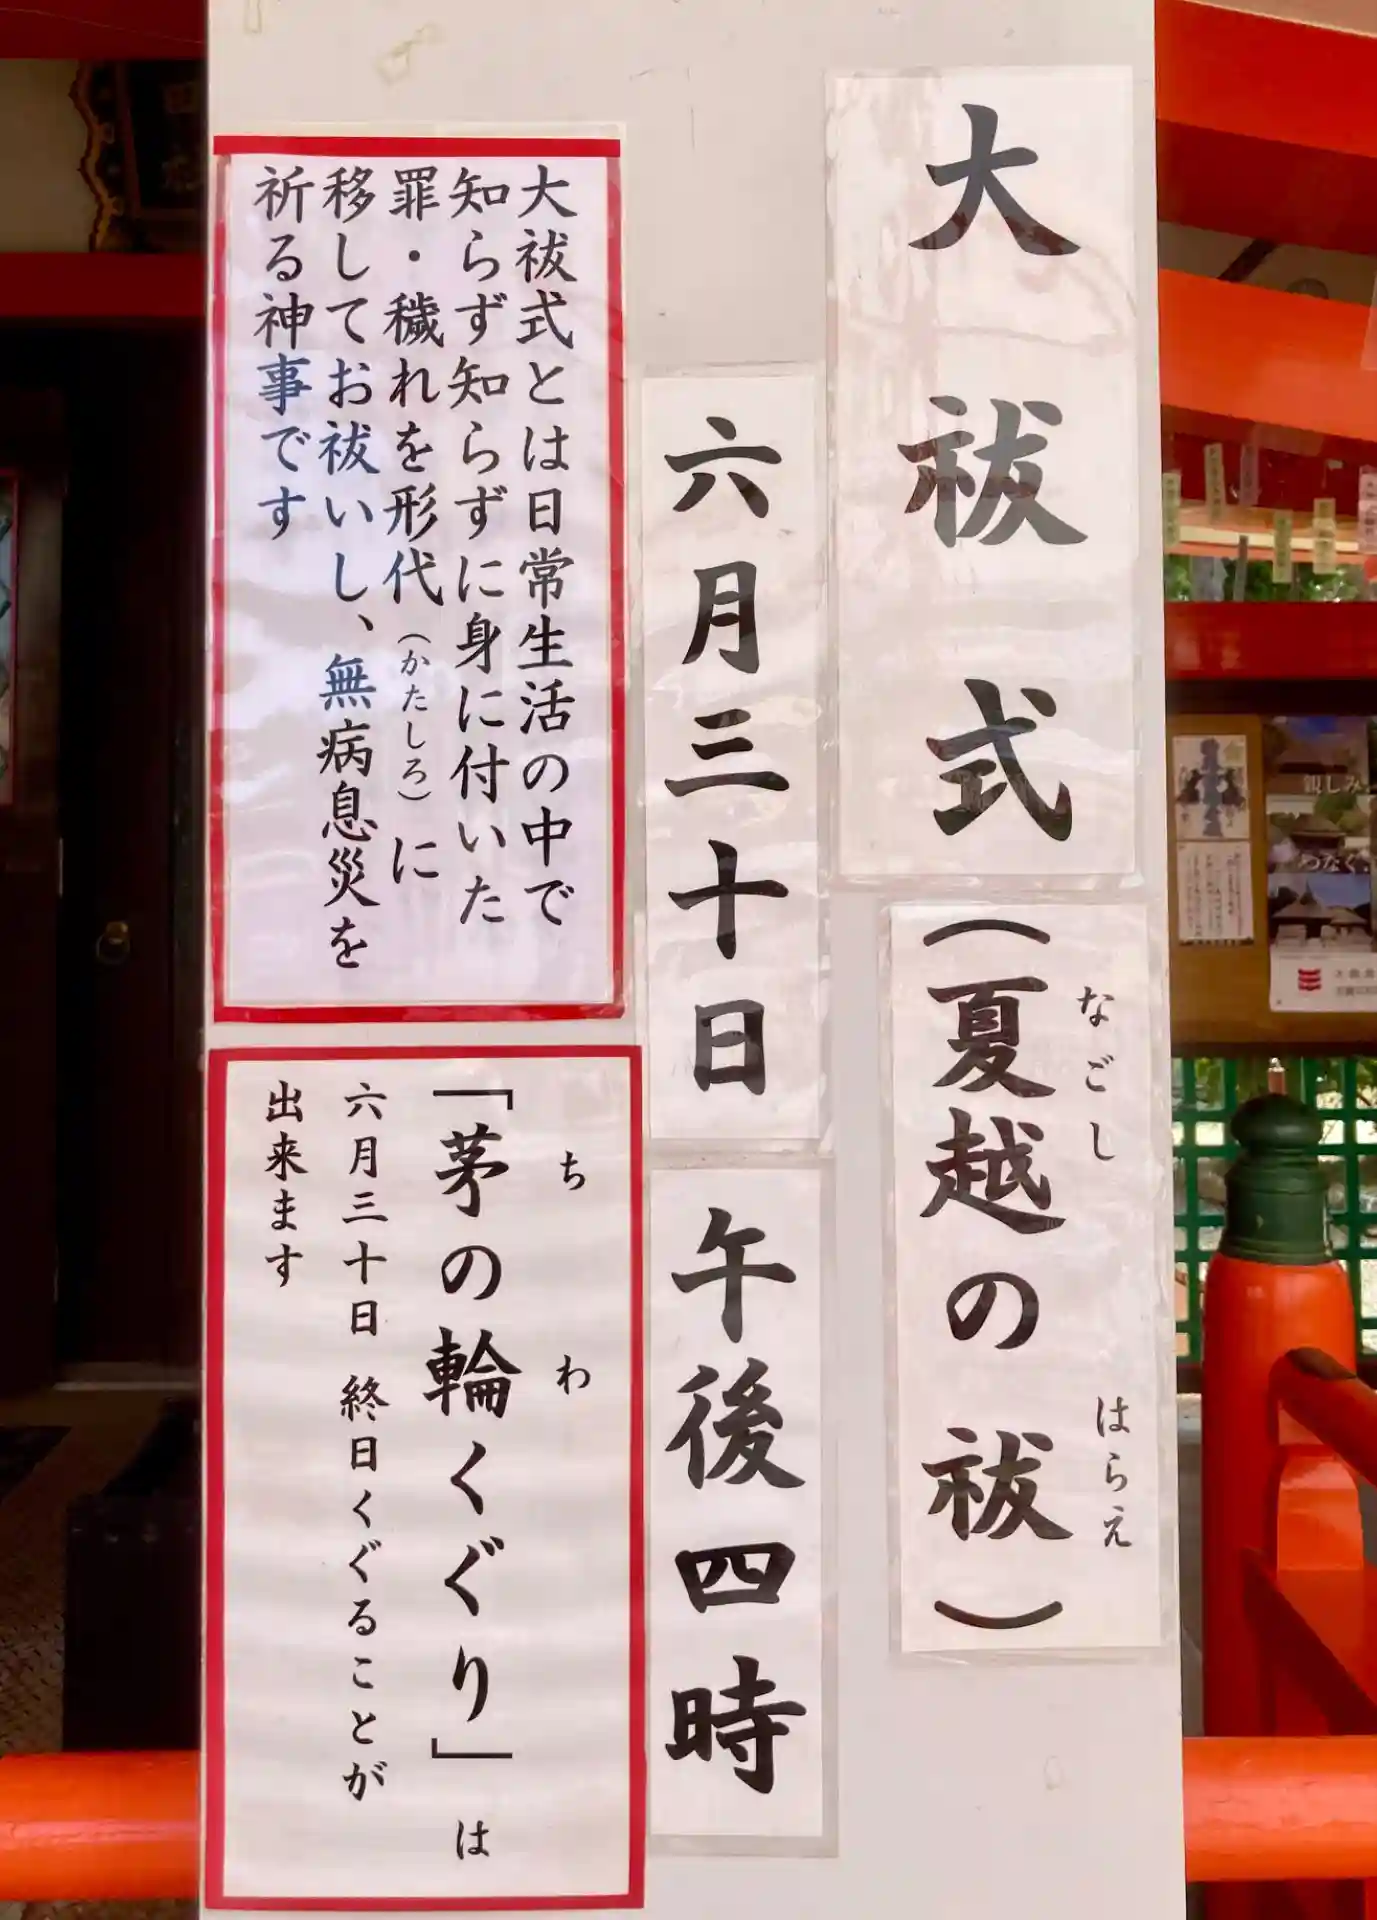 大祓式
（夏越の祓）
なごし
はらえ
六月三十日
午後四時
大祓式とは日常生活の中で
知らず知らずに身に付いた
罪・穢れを形代（かたしろ）に
移してお祓いし、無病息災を
祈る神事です
ちわ
「茅の輪くぐり」は
六月三十日 終日くぐることが
出来ます
親しみ
つなぐ